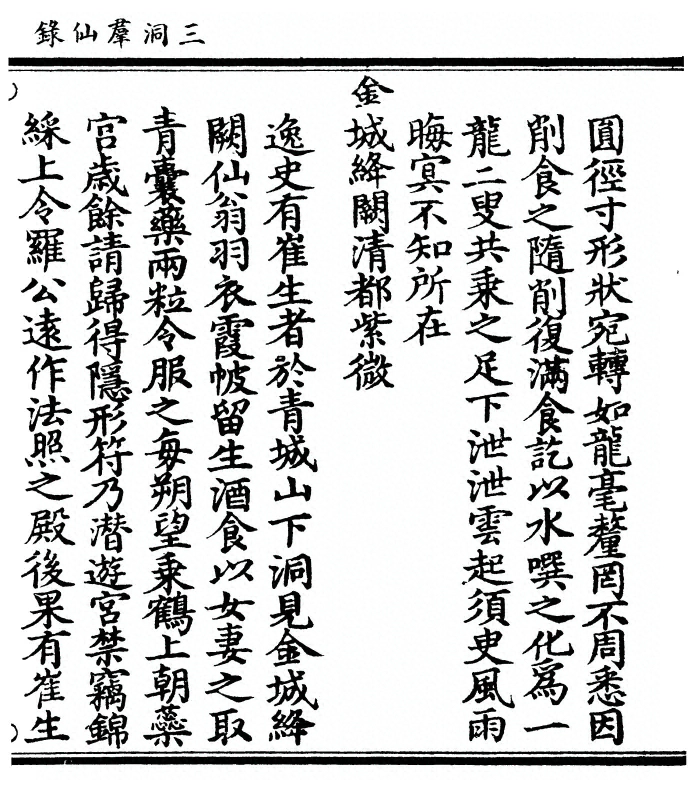 三洞羣仙錄
圎徑寸形狀宛轉如龍毫釐罔不周悉因
削食之隨削復滿食訖以水噀之化爲一
龍二叟共乗之足下泄泄雲起須臾風雨
晦冥不知所在
金城絳闕清都紫微
逸史有崔生者於青城山下洞見金城絳
闕仙翁羽衣霞帔留生酒食以女妻之取
青囊藥兩粒令服之每朔望乗鶴上朝蘂
宮歳餘請歸得隱形符乃潛遊宮禁竊錦
綵上令羅公逺作法照之殿後果有崔生